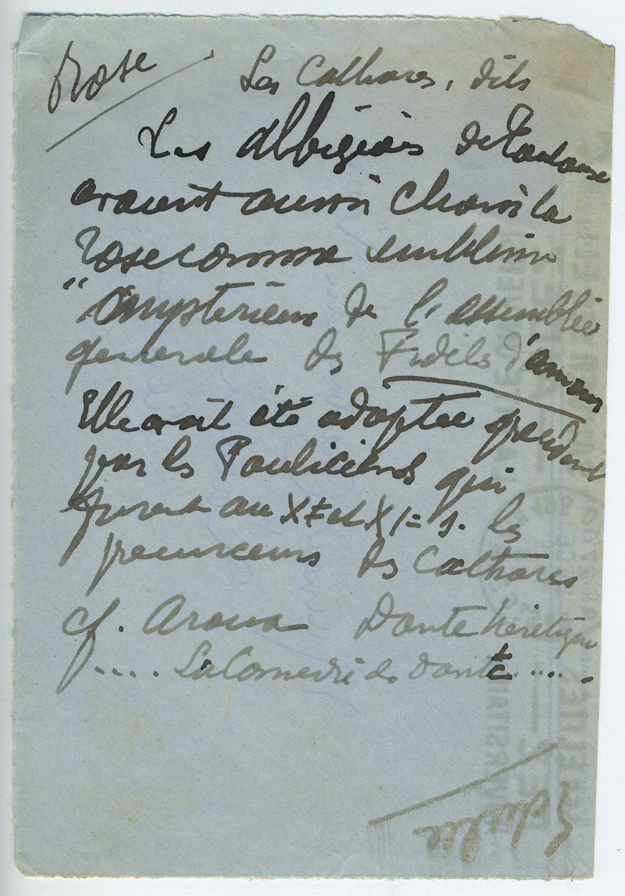 Rose
Les Cathares, dits
Les albigeois de Toulouse
avaient aussi choisi la
rose comme emblème
"mystérieux de l'assemblée
generale des Fidèles d'amour
Elle avait été adoptée
par les Pauliciens qui
furent au Xe et XIe s. les
precurseurs des Cathares
cf. Aroux Dante hérétique
La Comedie de Dante .....